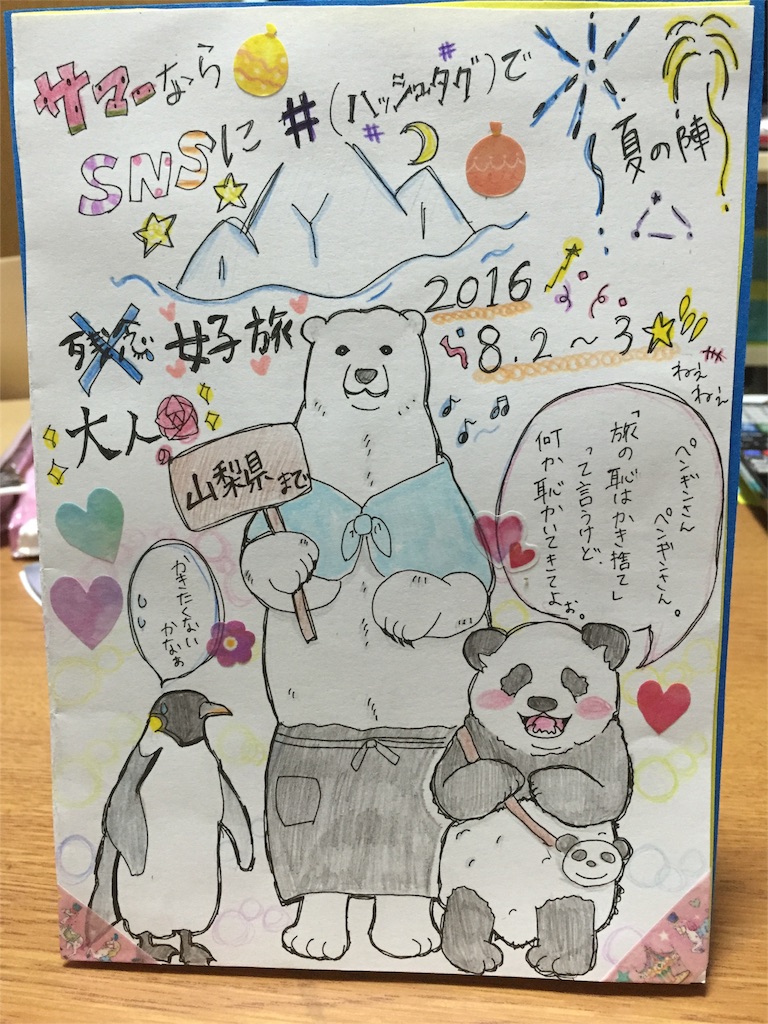 サマーなら
SNSに #(ハッシュタグ)で
夏の陣
2016
8.2〜3
残念 女子旅
大人の
山梨県まで
ねぇ
ねぇ
ペンギンさん
ペンギンさん。
「旅の恥はかき捨て」
って言うけど、
何か恥かいてきてよぉ。
かきたくない
かなぁ